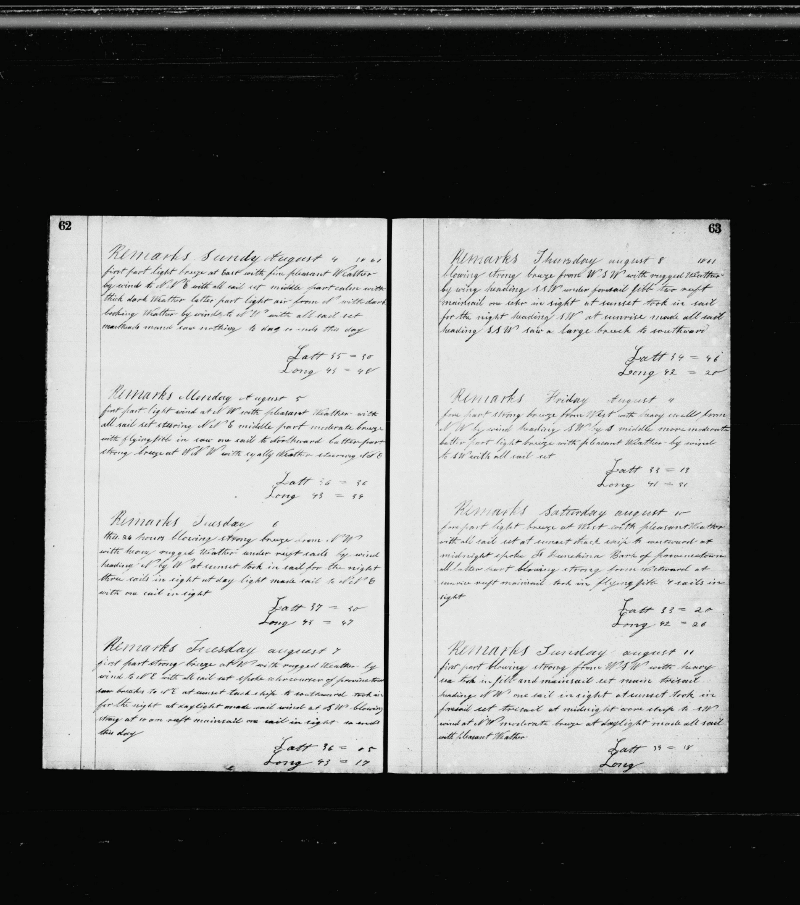 62
Remarks Sundy August 4
first part light breeze at East with fine pleasant Weather
by wind to N N E with all sail set middle part calm with
thick dark Weather latter part light air from N with dark
looking Weather by wind to N W with all sail set
masthead mand saw nothing to day so ends this day
Latt 35 = 30
Long 43 = 48
Remarks Monday August 5
first part light wind at N W with pleasant Weather with
all sail set stearing N N E middle part moderate breeze
with flying jibb in saw one sail to Northward latter part
strong breeze at W N W with Weather stearing
Latt 36 = 36
Long 43 = 34
Remarks Tuesday 6
this 24 hours blowing strong breeze from N W
with heavy rugged Weather under reeft sails by wind
heading N by W at sunset took in sail for the night
three sails in sight at day light made sail to N N E
with one sail in sight
Latt 37 = 30
Long 43 = 47
Remarks Tuesday august 7
first part strong breeze at W with rugged Weather by
wind to N E with all sail set spoke of provincetown
saw breaks to N E at sunset tack ship to southward took in
for the night at daylight made sail wind at S W blowing
strong at reeft mainsail one sail in sight so ends
this day
Latt 36 = 05
Long 43 = 17
63
Remarks Thursday august 8
blowing strong breeze from W S W with rugged Weather
by wing heading S S W under foresail jibb two reeft
mainsail one in sight at sunset took in sail
for the night heading S W at sunrise made all sail
heading S S W saw a large breech to southward
Latt 34 = 46
Long 42 = 20
Remarks Friday August 9
fore part strong breeze from West with heavy swell from
N W by wind heading S W by S middle more moderate
latter part light breeze with pleasant Weather by wind
to S W with all sail set
Latt 33 = 19
Long 41 = 31
Remarks Saturday august 10
fore part light breeze at West with pleasant Weather
with all sail set at sunset tack ship to westward at
midnight spoke Bark of provincetown
all latter part blowing strong from westward at
sunrise reeft mainsail took in flying jibb 4 sails in
sight
Latt 33 = 20
Long 42 = 26
Remarks Sunday august 11
first part blowing strong from W S W with heavy
sea took in jibb and mainsail set main trisail
heading N W one sail in sight at sunset took in
foresail set trisail at midnight wore ship to S W
wind at N W moderate breeze at daylight made all sail
with pleasant Weather
Latt 33 = 18
Long